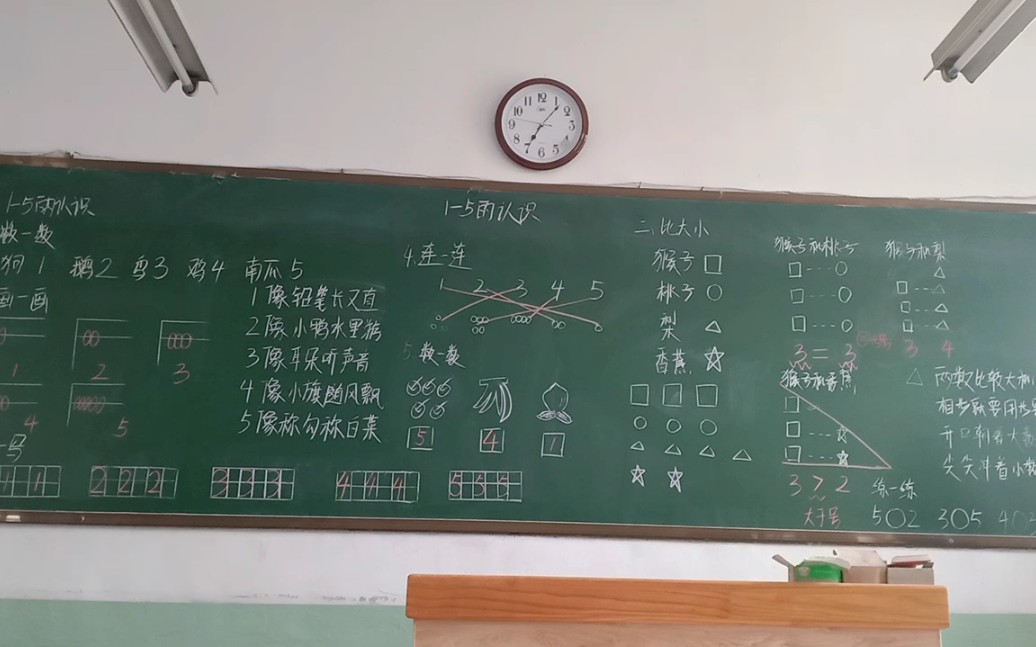 1-5的认识
数一数
狗1 鹅2 鸟3 鸡4 南瓜5
画一画
1 2 3
4 5
1像铅笔长又直
2像小鸭水里游
3像耳朵听声音
4像小旗随风飘
5像称勾称白菜
1 1
2 2 2
3 3 3
4 4 4
5 5 5
1-5的认识
4.连一连
1 2 3 4 5
5.数一数
5 4 1
二、比大小
猴子
桃子
梨
香蕉
猴子和桃子
3 = 3
猴子和梨
3 4
猴子和香蕉
3 > 2
大于号
练一练
5○2 3○5 4○
12 1 2 3 4 5 6 7 8 9 10 11